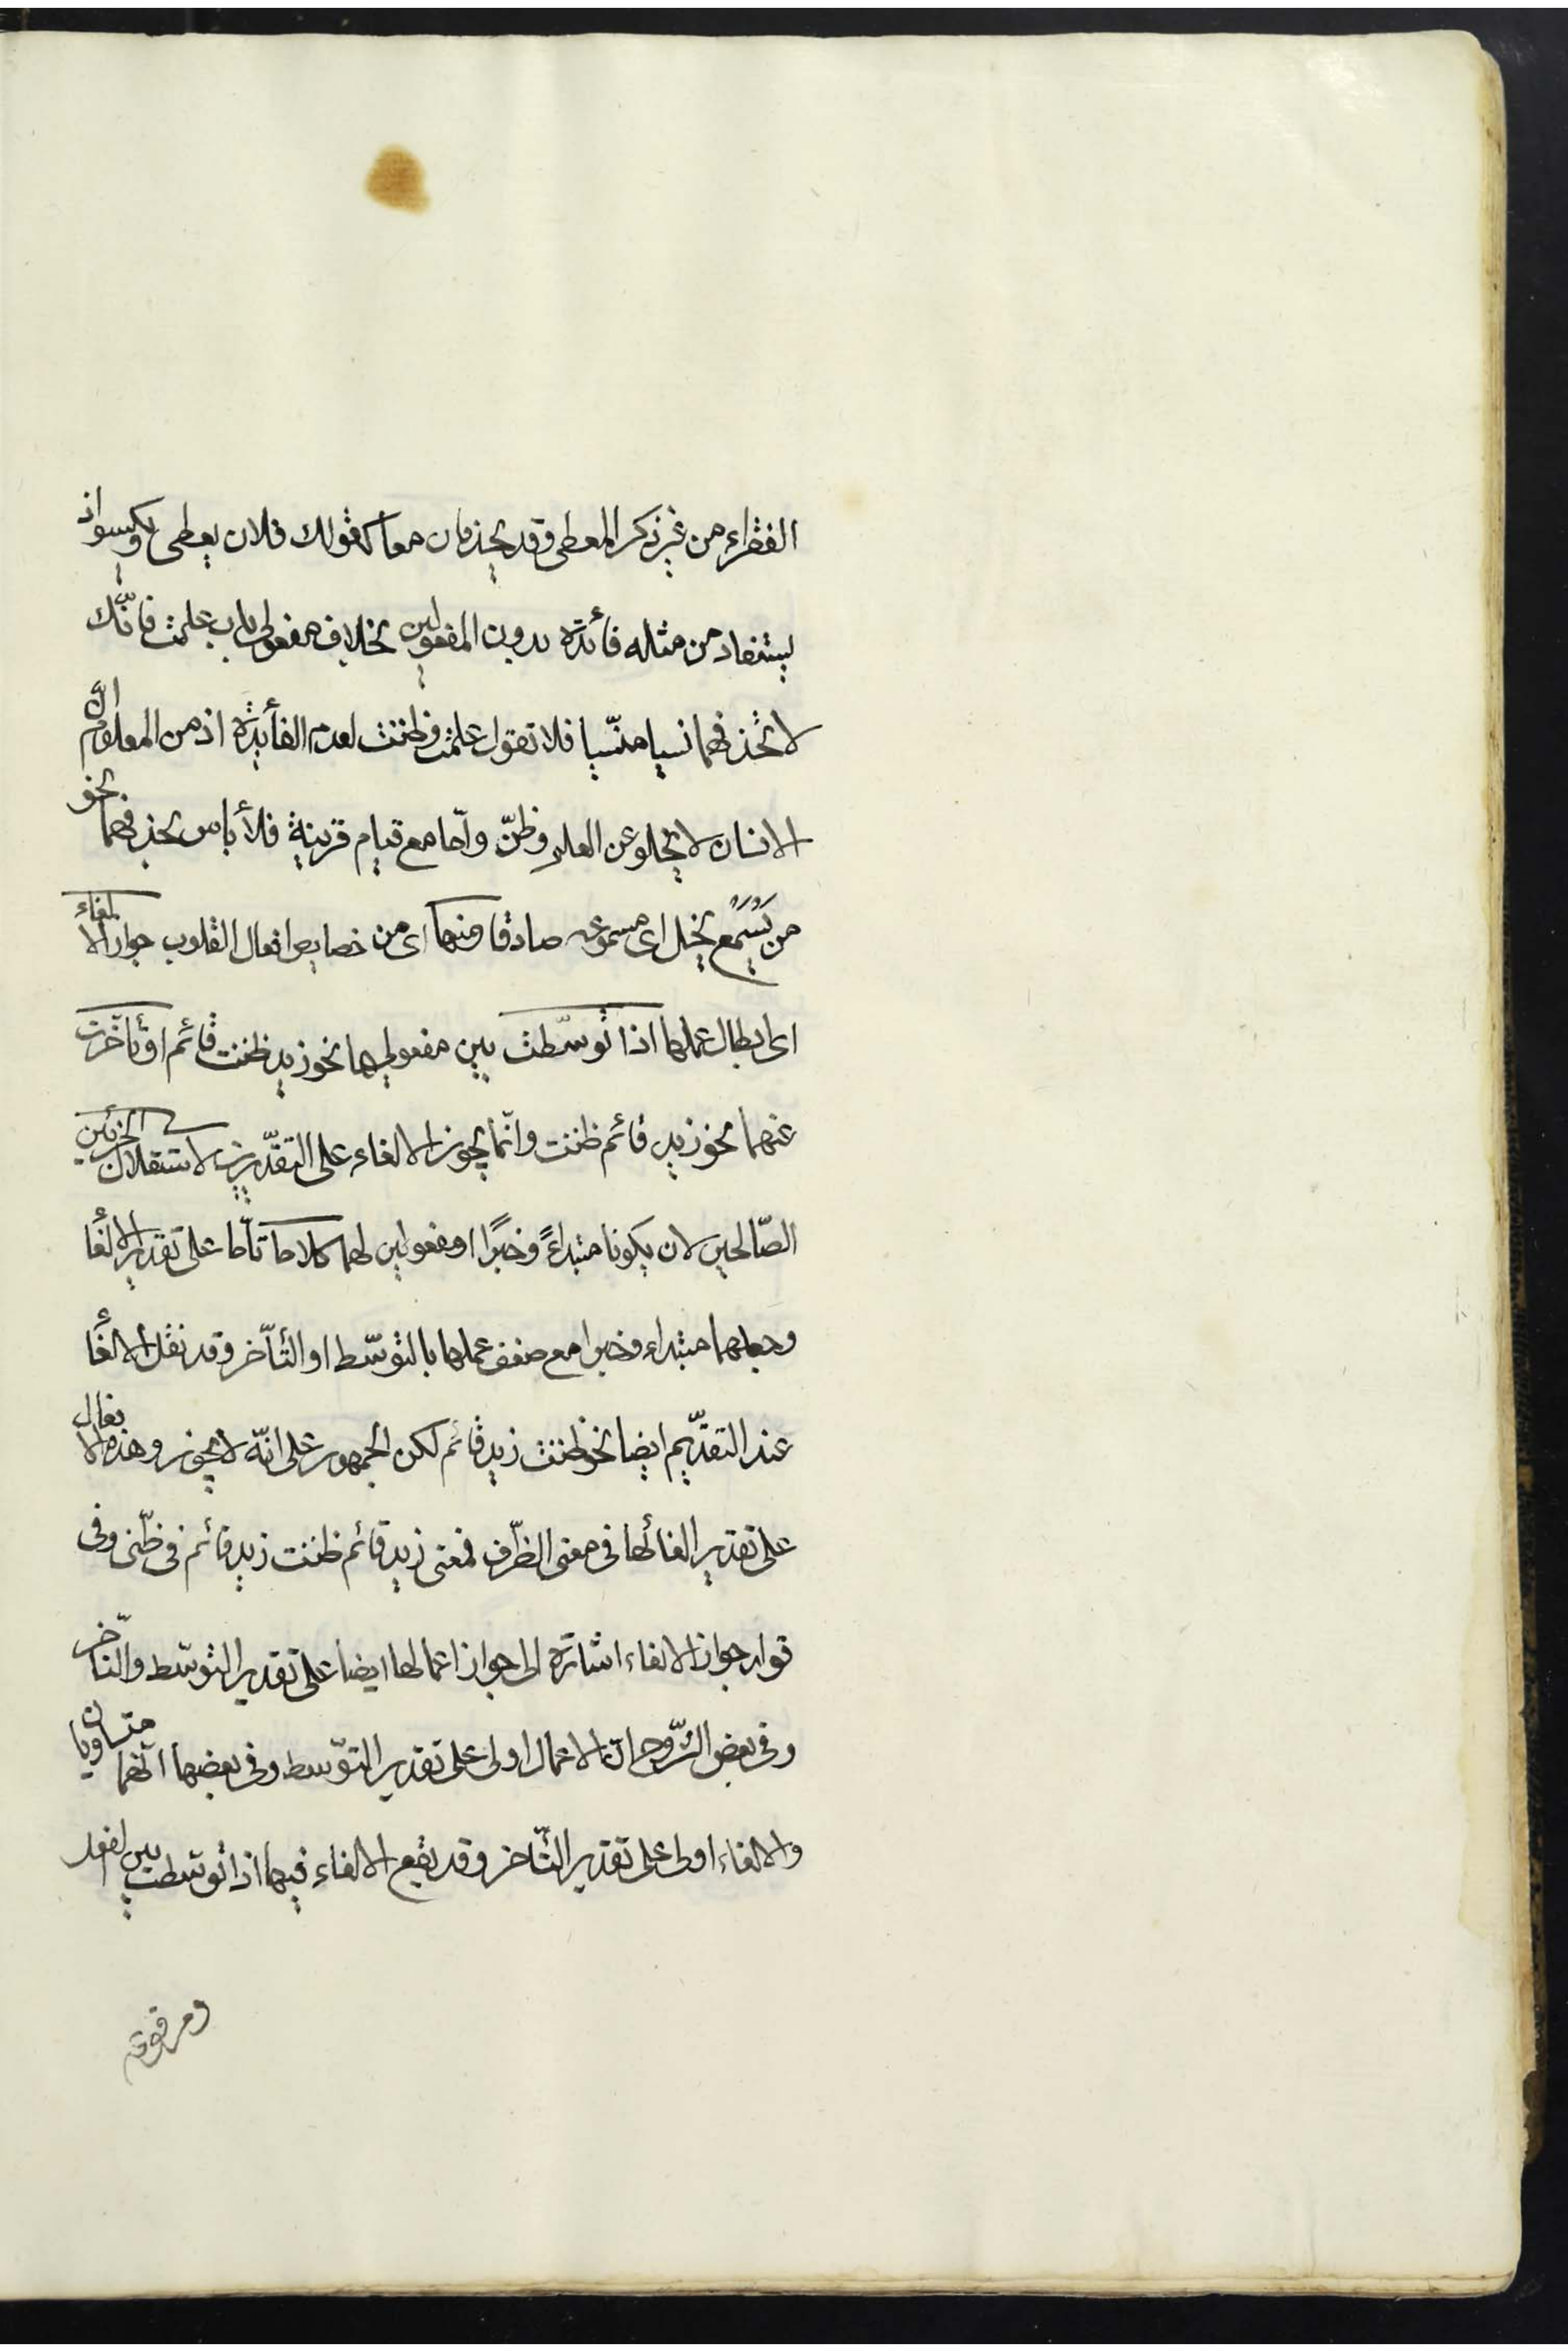 الفقراء من غير ذكر المعطى وقد يحذفان معا كقولك فلان يعطى ويكسو اذ
يستفاد من مثله فأئدة بدون المفعولين بخلاف مفعولى باب علمت فانّك
لا تحذفهما نسيا منسّيا فلا تقول علمت وظننت لعدم الفأيدة اذ من المعلوم انّ
الانسان لا يخلو عن العلم وظنّ وأمّا مع قيام قرينة فلأ باس بحذفهما نحو
من يَسْمَع يخل اى مسموعه صادقا ومنها اى من خصايص افعال القلوب جواز الالغاء
اى ابطال عملها اذا توسّطت بين مفعوليها نحو زيد ظننت قائم او تأخّرت
عنهما نحو زيد قائم ظننت وانّما يجوز الالغاء على التقدّيرين لاستقلال الجزئين
الصّالحين لان يكونا مبتداءً وخبرًا او مفعولين لهما كلاما تآما على تقدير الالغأ
وجعلهما مبتداء وخبرا مع ضعف عملها بالتوسّط او التأخّر وقد نقل الالغأ
عند التقدّيم ايضا نحو ظننت زيد قائم لكن الجمهور على انّه لا يجوز وهذه الافعال
على تقدير الغائها فى معنى الظّرف فمعنى زيد قائم ظننت زيد قائم فى ظنّى وفى
قوله جواز الالغاء اشارة الى جواز اعمالها ايضا على تقدير التوسّط والتأخّر
وفى بعض الشّروح انّ الاعمال اولى على تقدير التوّسط وفى بعضها انّهما متساويان
والالغاء اولى على تقدير التأخّر وقد يقع الالغاء فيها اذا توسّطت بين الفعل
ومرفوعه